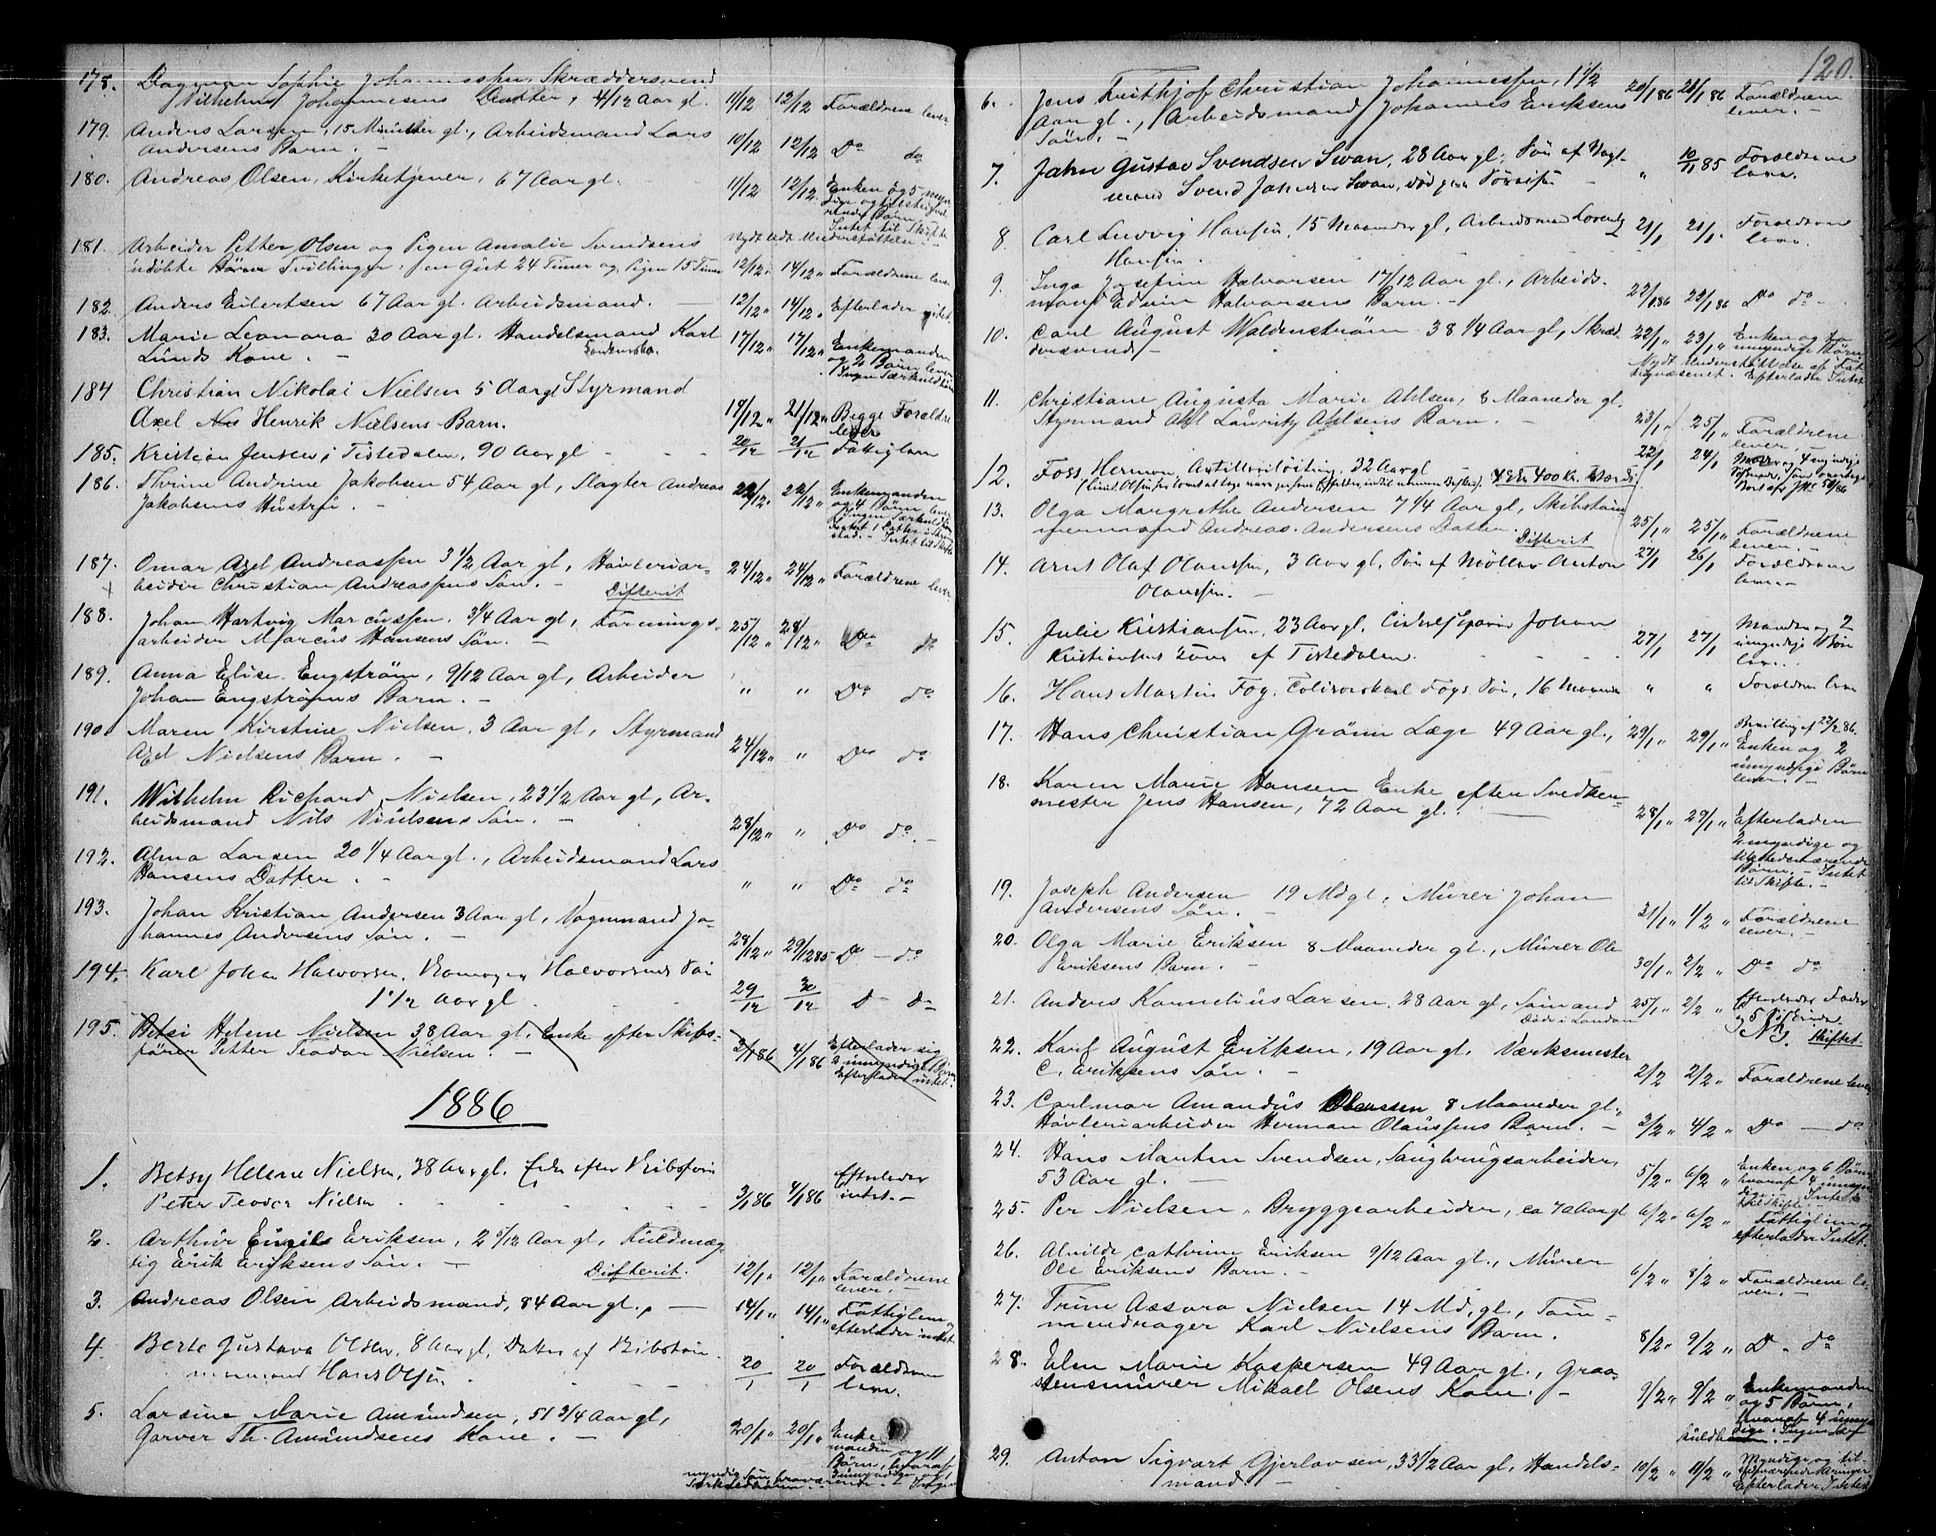 120.
178. Dagmar Sophie Johannessen, Skræddersvend
Vilhelm Johannesens Datter, 4/12 Aar gl. 11/12 12/12 Forældrene lever
179. Anders Larsen, 15 Minutter gl., Arbeidsmand Lars
Andersens Barn. — 10/12 12/12 Do do
180. Andreas Olsen, Kirketjener, 67 Aar gl. 11/12 12/12 Enken og 5 myn
dige og
Børn,
Intet til Skifte
Nydt Understøttelse
181. Arbeider Petter Olsen og Pigen Amalie Svendsens
udøbte Børn Tvillinger, en Gut 24 Timer og Pigen 15 Timer 12/12 " 14/12 " Forældrene lever
182. Anders Eilertsen 67 Aar gl. Arbeidsmand. 12/12 " 14/12 " Efterlader intet.
183. Marie Leonora 30 Aar gl. Handelsmand Karl
Lunds Kone. — 17/12 " 17/12 " Enkemanden
og 2 Børn lever
Ingen Særkuldbørn
184 Christian Nikolai Nielsen 5 Aar gl Styrmand
Axel Henrik Nielsens Barn. 19/12 " 21/12 " Begge Forældre
lever
185. Kristian Jensen, Tistedalen, 90 Aar gl 20/12 21/12 Fattiglem
186. Thrine Andrine Jakobsen 54 Aar gl, Slagter Andreas
Jakobsens Hustru. 22/12 " 22/12 " Enkemanden
og 4 Børn lever
Ingen Særkuldb
Intet til Skifte
187. Omar Axel Andreassen 3 1/2 Aar gl, Høvleriar-
beider Christian Andreassens Søn. — Difterit 24/12 " 24/12 " Forældrene lever
188. Johan Hartvig Marcussen. 3/4 Aar gl, Formings-
arbeider Marcus Hansens Søn. — 25/12 " 28/12 " Do do
189. Anna Elise Engstrøm, 9/12 Aar gl, Arbeider
Johan Engstrøms Barn. — " " Do do
190. Maren Kirstine Nielsen, 3 Aar gl, Styrmand
Axel Nielsens Barn. — 24/12 " " Do do
191. Wilhelm Richard Nielsen, 23 1/2 Aar gl, Ar-
beidsmand Nils Nielsens Søn. — 28/12 " " Do do. —
192. Alma Larsen 20 1/4 Aar gl., Arbeidsmand Lars
Hansens Datter. — " " Do do
193. Johan Kristian Andersen 3 Aar gl, Vognmand Jo-
hannes Andersens Søn. — 28/12 " 29/12 85 Do — do
194. Karl Johan Halvorsen, Halvorsens Søn
1 1/2 Aar gl 29/12 30/12 D— D—
195. Betsi Helene Nielsen 38 Aar gl, Enke efter Skibs-
fører Petter Teodor Nielsen. — 3/1 86 4/1 86 Efterlader sig
umyndige Børn
Efterlader intet.
1886
1. Betsy Helene Nielsen, 38 Aar gl. Enke efter Skibsfører
Peter Teodor Nielsen 3/1 86 4/1 86 Efterlader
intet. —
2. Arthur Engils Eriksen, 2 5/12 Aar gl, Fuldmæg-
tig Erik Eriksens Søn. — Difterit. 12/1 " 12/1 " Forældrene
lever. —
3. Andreas Olsen Arbeidsmand, 84 Aar gl., — 14/1 " 14/1 " Fattiglem og
efterlader intet
4. Berte Gustava Olsen, 8 Aar gl, Datter af Skibstøm-
mermand Hans Olsen 20/1 20/1 Forældrene
lever.
5. Larsine Marie Amundsen, 51 3/4 Aar gl,
Garver Th. Amundsens Kone. — 20/1 " 20/1 " Enke-
manden og 11
Børn, hvoraf
3 umyndige og 1
myndig Søn fraværende. — Ingen
Særkuldbørn.
6. Jens Frithjof Christian Johannessen, 1 1/2
Aar gl., Arbeidsmand Johannes Eriksens
Søn. — 20/1 86 21/1 86 Forældrene
lever. —
7. John Gustav Svendsen Swan, 28 Aar gl, Søn af Vogt-
mand Svend Johnsen Swan, død paa " 10/11 85 Forældrene
lever.
8. Carl Ludvig Hansen, 15 Maaneder gl, Arbeidsmand Lorentz
Hansen. 21/1 21/1 Forældrene
lever.
9. Inga Josefine Halvorsen 17/12 Aar gl., Arbeids-
mand Edvin Halvorsens Barn. — 22/1 86 23/1 86 Do do —
10. Carl August Waldenstrøm 38 1/4 Aar gl, Skræd
dersvend. — 22/1 " 23/1 " Enken og to
umyndige Børn
Nydt Understøttelse af Fat-
tigvæsenet. Efterlader Intet
11. Christiane Augusta Marie Ahlsen, 8 Maaneder gl.
Styrmand Axl Lauritz Ahlsens Barn. — 23/1 " 25/1 " Forældrene
lever
12. Foss Herman, Artilleriløitnant, 32 Aar gl 22/1 24/1 Moder og 4 myndige
Søskende
400 Kr.
13. Olga Margrethe Andersen 7 1/4 Aar gl, Skibstøm
mermand Andreas Andersens Datter. Difterit 25/1 " 25/1 " Forældrene
lever. —
14. Arnt Olaf Olaussen, 3 Aar gl. Søn af Møller Anton
Olaussen. — 27/1 26/1 Forældrene
lever
15. Julie Kristiansen, 23 Aar gl. Johan
Kristiansens Kone af Tistedalen. 27/1 27/1 Manden og 2
umyndige Børn
lever.
16. Hans Martin Fog, Fogs Søn, 16 Maaneder " " Forældrene lever
17. Hans Christian Grønn Læge 49 Aar gl., 29/1 " 29/1 " Bevilling af 22/2 86.
Enken og 2
umyndige Børn
lever. —
18. Karen Marie Hansen Enke efter Snedker-
mester Jens Hansen, 72 Aar gl. — 28/1 " 29/1 " Efterlader
2 myndige og
tilstedeværende
Børn, — Intet
til Skifte. —
19. Joseph Andersen 19 Md gl, Murer Johan
Andersens Søn. — 31/1 " 1/2 " Forældrene
lever. —
20. Olga Marie Eriksen 8 Maaneder gl., Murer Ole
Eriksens Barn. — 30/1 " 2/2 " Do do
21. Anders Kornelius Larsen, 28 Aar gl, Sømand 25/1 " 2/2 " Efterlader Fader
Døde i London og 5 Søskende
Skiftet.
22. Karl August Eriksen, 19 Aar gl. Værksmester
C. Eriksens Søn. — 2/2 2/2 " Forældrene lever
23. Carlmar Amandus Olaussen, 8 Maaneder gl.,
Høvleriarbeider Herman Olaussens Barn. — 3/2 " 4/2 " Do — do
24. Hans Martin Svendsen, Saugbrugsarbeider,
53 Aar gl. — 5/2 " 6/2 " Enken og 6 Børn
hvoraf 4 umyn
dige. Intet
til Skifte. —
25. Per Nielsen, Bryggearbeider, ca 70 Aar gl 6/2 " 6/2 " Fattiglem og
efterlader Intet.
26. Alvilde Cathrine Eriksen 9/12 Aar gl., Murer
Ole Eriksens Barn. — 6/2 " 8/2 " Forældrene le-
ver. —
27. Trine Aasora Nielsen 14 Md, gl., Tøm-
mendrager Karl Nielsens Barn. 8/2 " 9/2 " D. do
28. Elen Marie Kaspersen 49 Aar gl., Graa-
stensmurer Mikael Olsens Kone. — 9/2 " 9/2 " Enkemanden
og 5 Børn,
hvoraf 4 umyn
dige. Ingen Sær
kuldbørn. —
29. Anton Sigvart Gjerlavsen, 33 1/2 Aar gl, Handels-
mand. — 10/2 " 11/2 " Myndige og til-
stedeværende Arvinger
Efterlader Intet